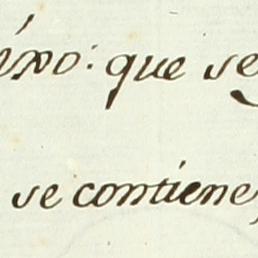 que se
se contiene,